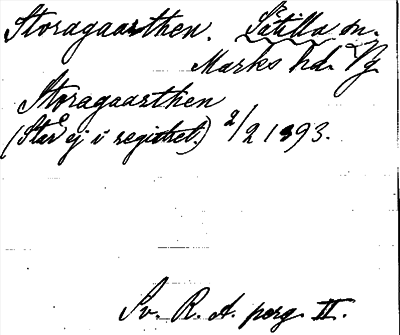 Storagaarthen. Sätilla sn.
Marks hd. Vg.
Storagaarthen
(Står ej i registret.) 2/2 1393.
Sv. R. A. perg. II.